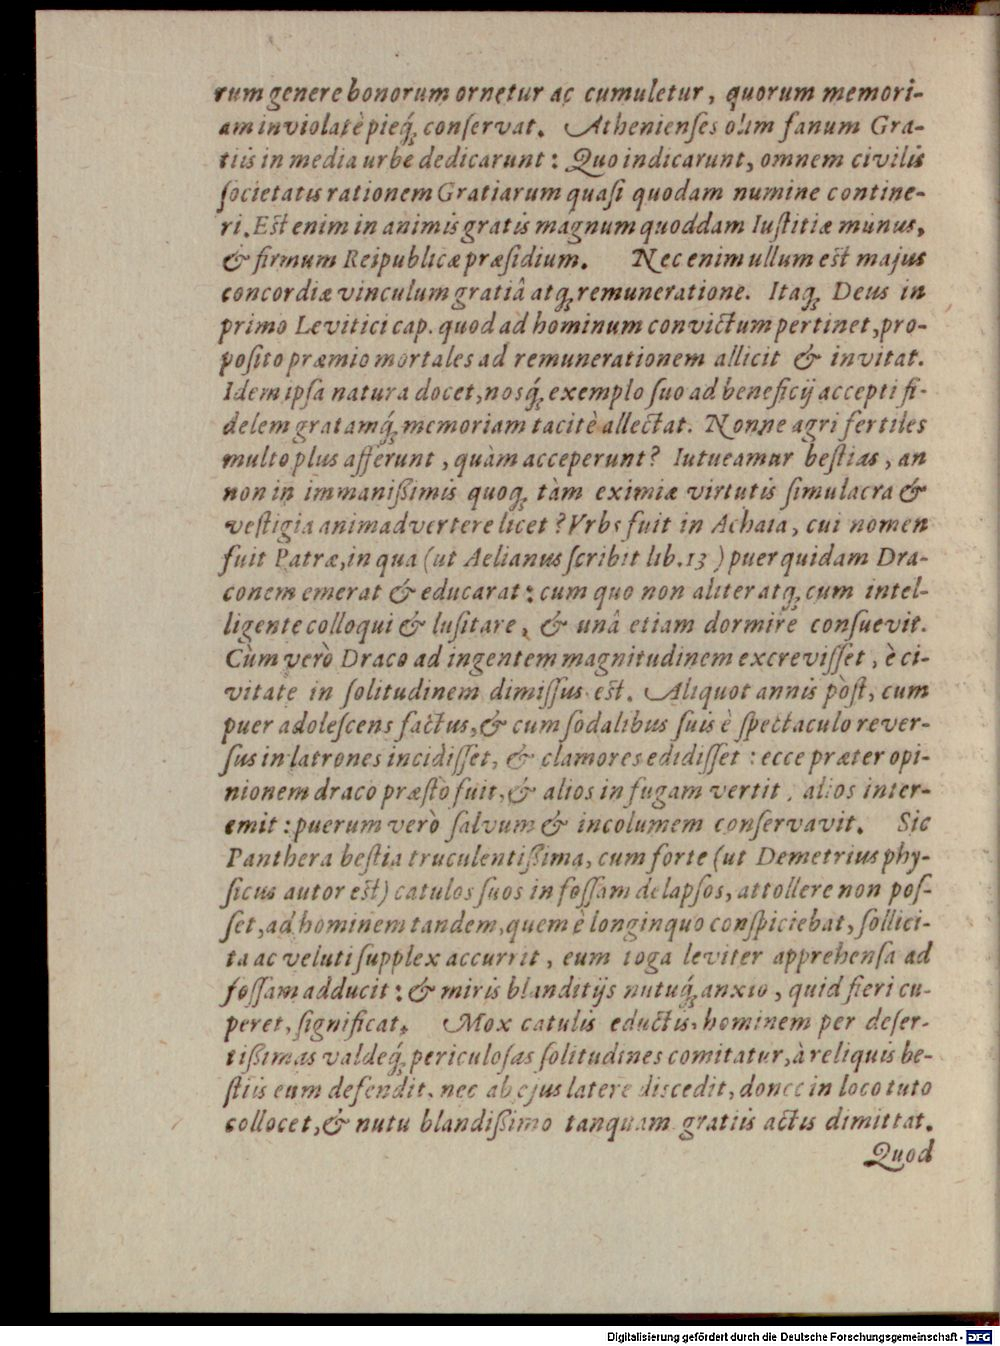 rum genere bonorum ornetur ac cumuletur, quorum memori-
am inviolatè pieq́; conſervat. Athenienſes olim fanum Gra-
tiis in media urbe dedicarunt: Quo indicarunt, omnem civilis
ſocietatis rationem Gratiarum quaſi quodam numine contine-
ri. Est enim in animis gratis magnum quoddam Iuſtitiæ munus,
& firmum Reipublicæ præſidium. Nec enim ullum est majus
concordiæ vinculum gratiâ atq; remuneratione. Itaq; Deus in
primo Levitici cap. quod ad hominum convictum pertinet, pro-
poſito præmio mortales ad remunerationem allicit & invitat.
Idem ipſa natura docet, nosq́; exemplo ſuo ad beneficij accepti fi-
delem gratamq́; memoriam tacitè allectat. Nonne agri fertiles
multo plus afferunt, quàm acceperunt? Iutueamur beſtias, an
non in immanißimis quoq; tàm eximiæ virtutis ſimulacra &
veſtigia animadvertere licet? Vrbs fuit in Achaia, cui nomen
fuit Patræ, in qua (ut Aelianus ſcribit lib. 13) puer quidam Dra-
conem emerat & educarat: cum quo non aliter atq; cum intel-
ligente colloqui & luſitare, & unâ etiam dormire conſuevit.
Cùm verò Draco ad ingentem magnitudinem excreviſſet, è ci-
vitate in ſolitudinem dimiſſus est. Aliquot annis pòſt, cum
puer adoleſcens factus, & cum ſodalibus ſuis è ſpectaculo rever-
ſus in latrones incidiſſet, & clamores edidiſſet: ecce præter opi-
nionem draco præſtò fuit, & alios in fugam vertit, alios inter-
emit: puerum verò ſalvum & incolumem conſervavit. Sic
Panthera beſtia truculentißima, cum forte (ut Demetrius phy-
ſicus autor est) catulos ſuos in foſſam delapſos, attollere non poſ-
ſet, ad hominem tandem, quem è longinquo conſpiciebat, ſollici-
ta ac veluti ſupplex accurrit, eum toga leviter apprehenſa ad
foſſam adducit: & miris blanditijs nutuq́; anxio, quid fieri cu-
peret, ſignificat. Mox catulis eductis, hominem per deſer-
tißimas valdeq́; periculoſas ſolitudines comitatur, à reliquis be-
ſtiis eum defendit, nec ab ejus latere discedit, donec in loco tuto
collocet, & nutu blandißimo tanquam gratiis actis dimittat.
Quod
Digitalisierung gefördert durch die Deutsche Forschungsgemeinschaft - DFG